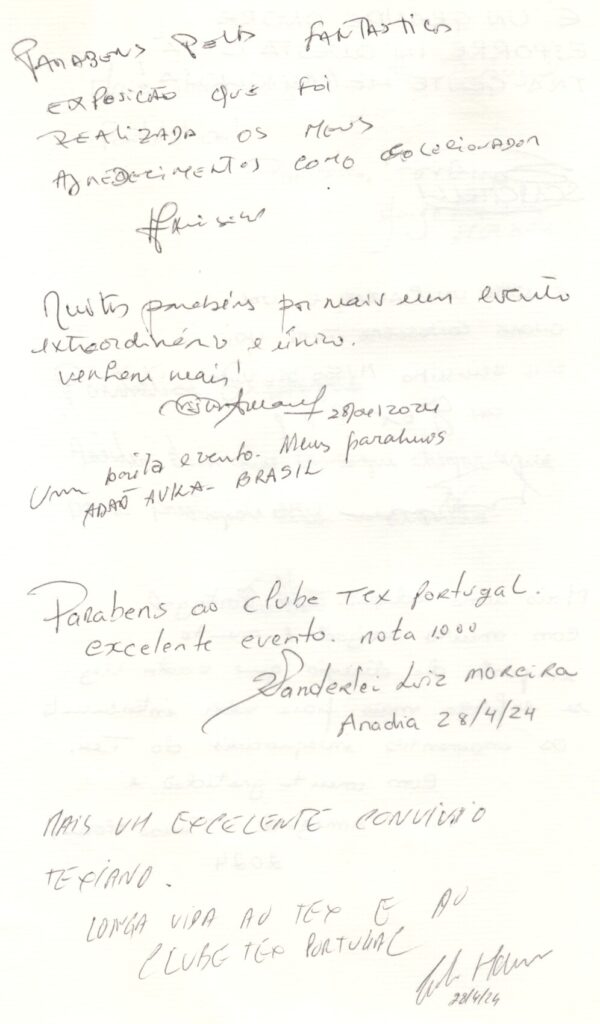 PARABENS PELA FANTASTICA
EXPOSIÇÃO QUE FOI
REALIZADA OS MEUS
AGREDECIMENTOS COMO COLECIONADOR
Muitos parabéns por mais um evento
extraordinário e único.
Venham mais!
28/04/2024
Um bonito evento. Meus parabens
ADÃO - BRASIL
Parabens ao clube Tex Portugal.
excelente evento. nota 1.000
Vanderlei Luiz MOREIRA
Anadia 28/4/24
MAIS UM EXCELENTE CONVÍVIO
TEXIANO.
LONGA VIDA AO TEX E AO
CLUBE TEX PORTUGAL
28/4/24